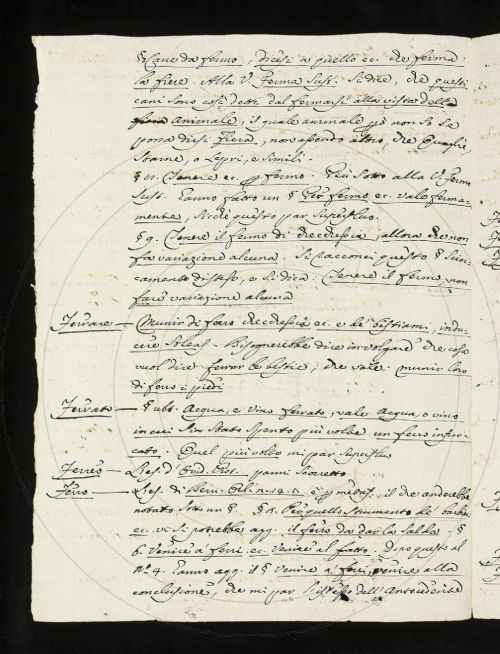 § Cane da fermo, dicesi a quello ec. che ferma
la fiere. Alla V. Ferma Sust. si dice, che questi
cani sono così detti dal fermarsi alla vista della
fiera Animale, il quale animale non so se
possa dirsi fiera, non essendo altro, che Quaglie,
Starne, o Lepri, e simili.
§ Tenere ec. fermo. Più sotto alla V. Fermo
Sust. fanno fatto un § Per fermo ec. vale ferma-
mente, sicchè questo par superfluo.
§ 9. Tenere il fermo di checchessia, allora che non
fa variazione alcuna. Si racconci questo §
camente disteso, e si dica: Tenere il fermo, non
fare variazione alcuna
Ferrare — Munir di ferro checchessia ec. e le bestiami, indu-
cere Soleas. Bisognerebbe dire in volgare che cosa
vuol dire ferrar le bestie; che vale munir loro
di ferro i piedi
Ferrato — § ubi Acqua, e vino ferrato, vale Acqua, o vino
in cui sia stato spento più volte un ferro info-
cato. Quel più volte mi par superfluo
Ferreo — scorretto
Ferro — Es. di Bern. Orl. il che anderebbe
notato sotto un §. § Per quello strumento le barbe
ec. vi si potrebbe agg. il ferro da dar la salda. §
6. Venire a ferri ec. venire al fatto. Dopo questo al
N.° 4. fanno agg. il § Venire a ferri, venire alla
conclusione, che mi par l'istesso dell'Antecedente